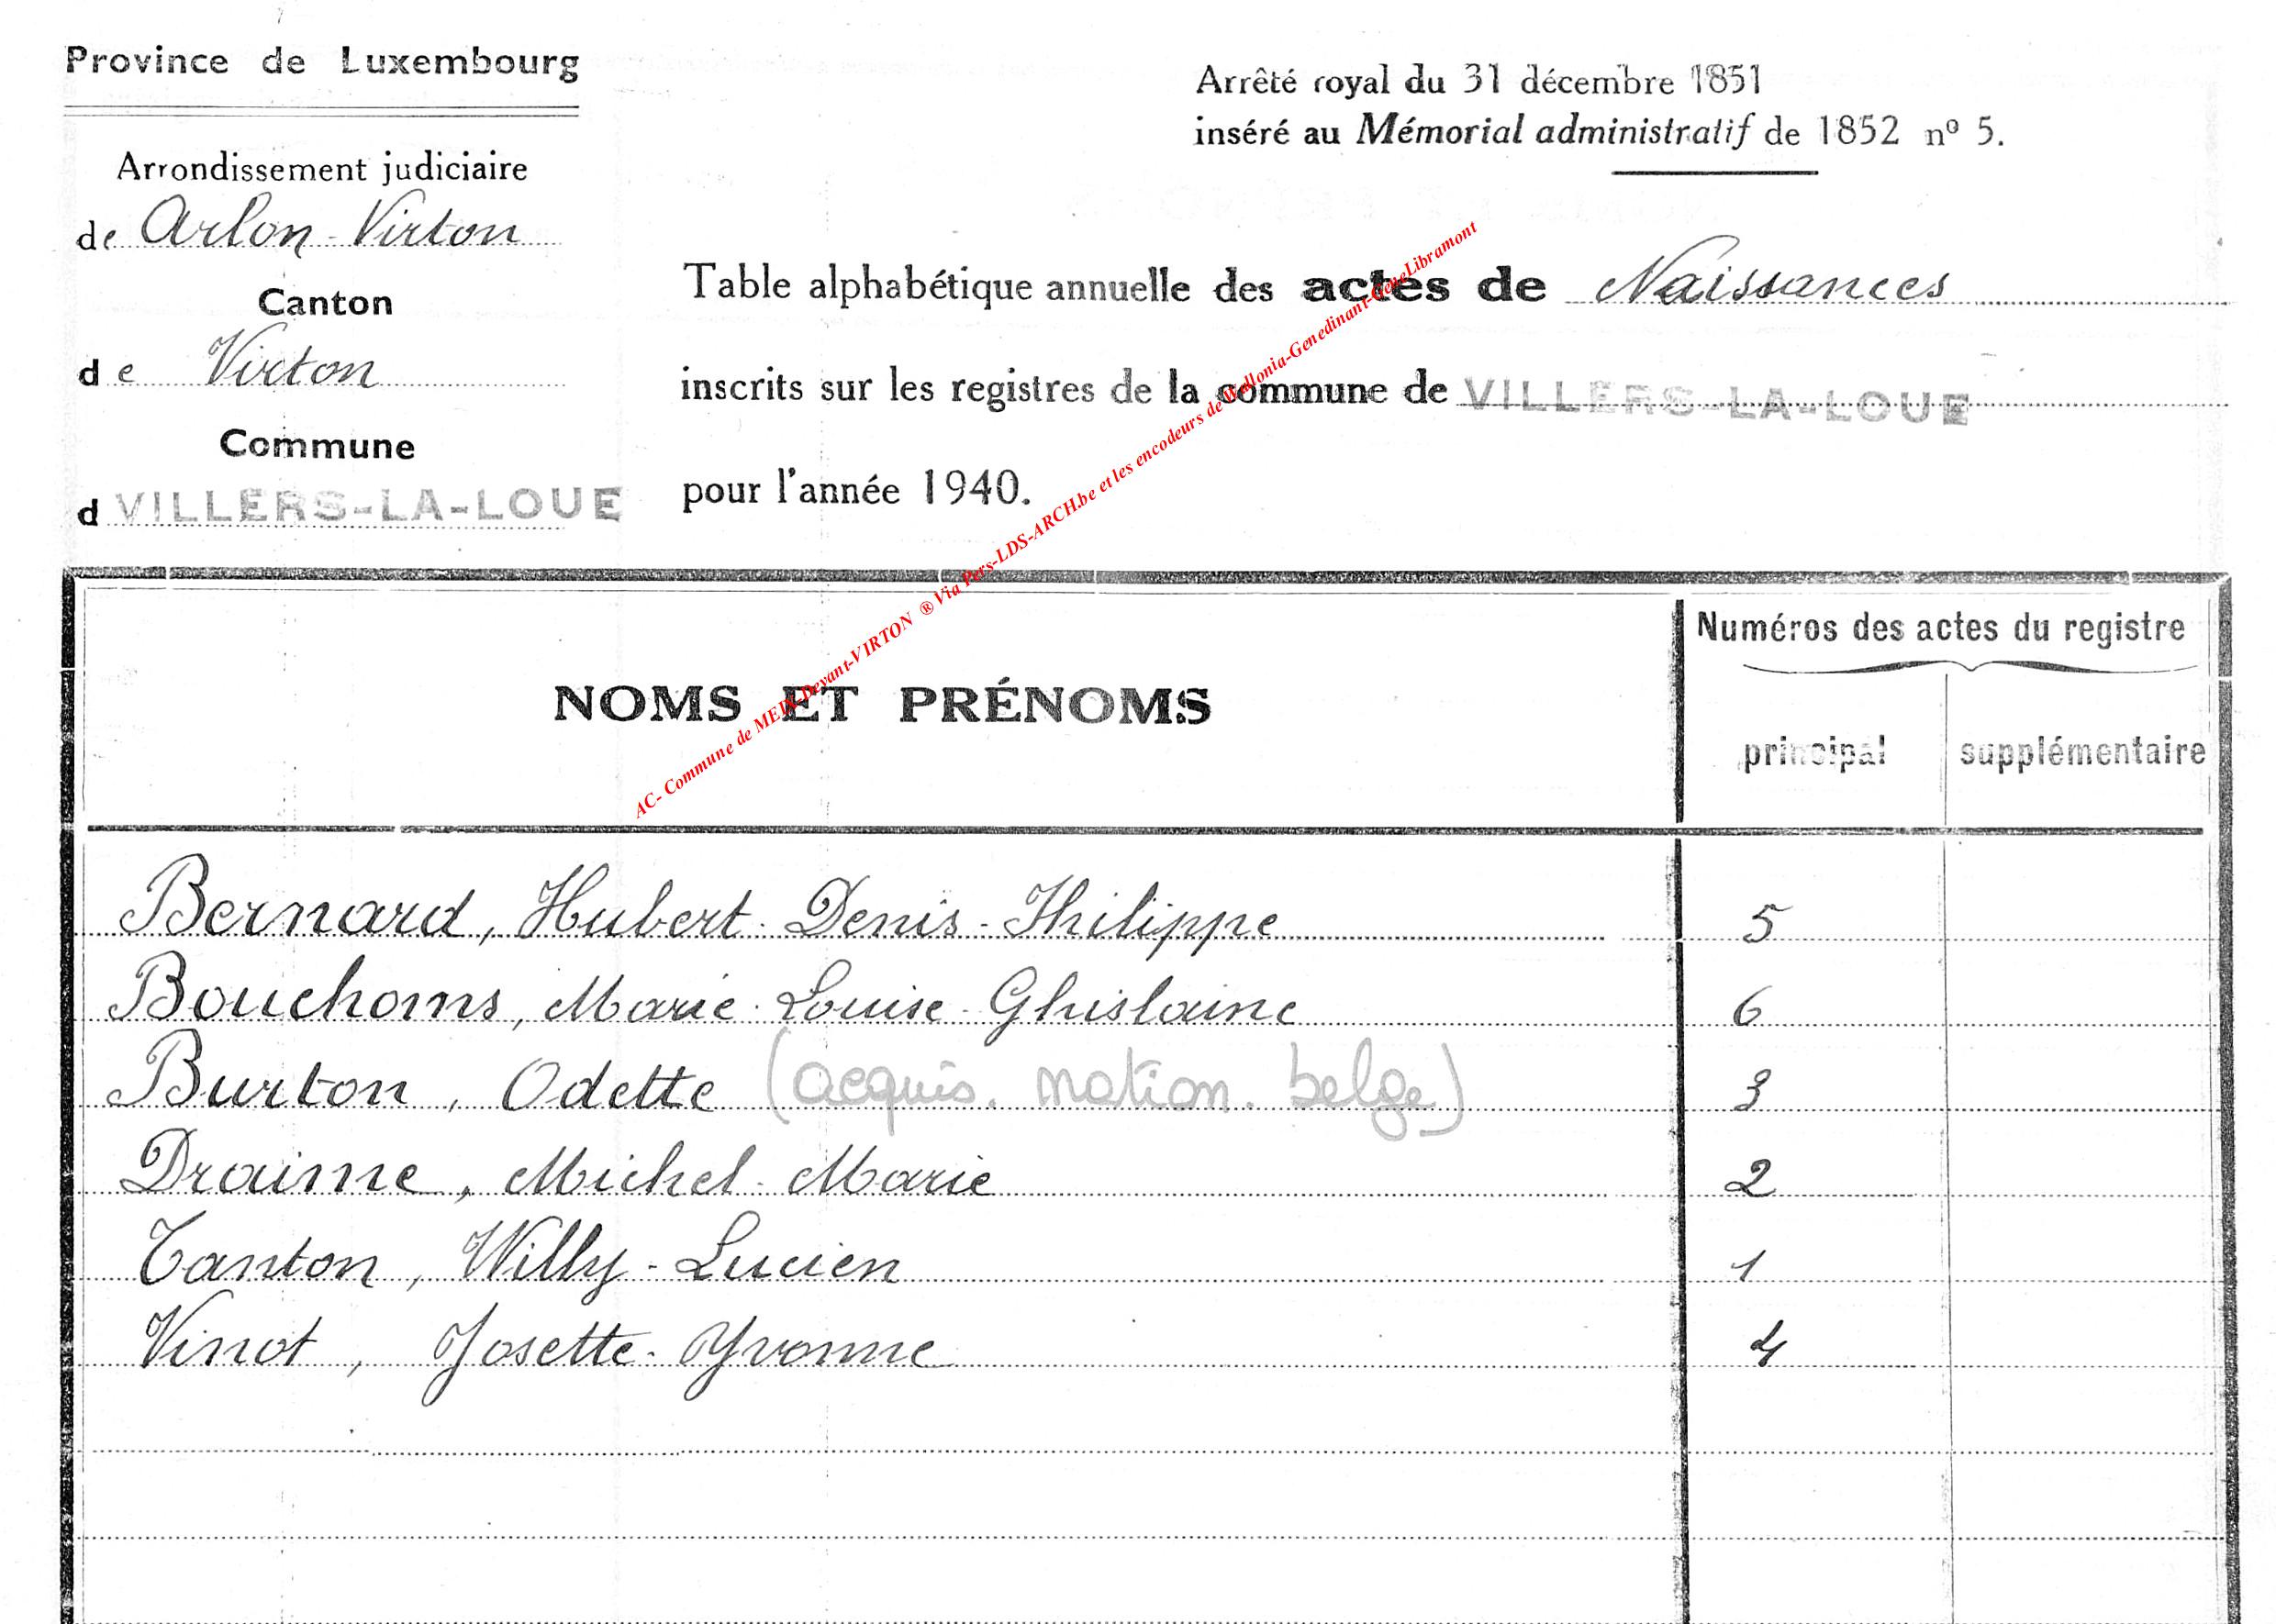 Province de Luxembourg
Arrondissement judiciaire
de Arlon-Virton
Canton
de Virton
Commune
d VILLERS-LA-LOUE
Arrêté royal du 31 décembre 1851
inséré au Mémorial administratif de 1852 nº 5.
Table alphabétique annuelle des actes de Naissances
inscrits sur les registres de la commune de VILLERS-LA-LOUE
pour l'année 1940.
AC- Commune de MEIX-Devant-VIRTON ® Via Pers-LDS-ARCH.be et les encodeurs de Wallonia-Genedinant-GeneLibramont
NOMS ET PRÉNOMS
Numéros des actes du registre
principal supplémentaire
Bernard, Hubert-Denis-Philippe 5
Bouchoms, Marie-Louise-Ghislaine 6
Burton, Odette (acquis. nation. belge) 3
Draime, Michel-Marie 2
Tanton, Willy-Lucien 1
Vinot, Josette-Yvonne 4